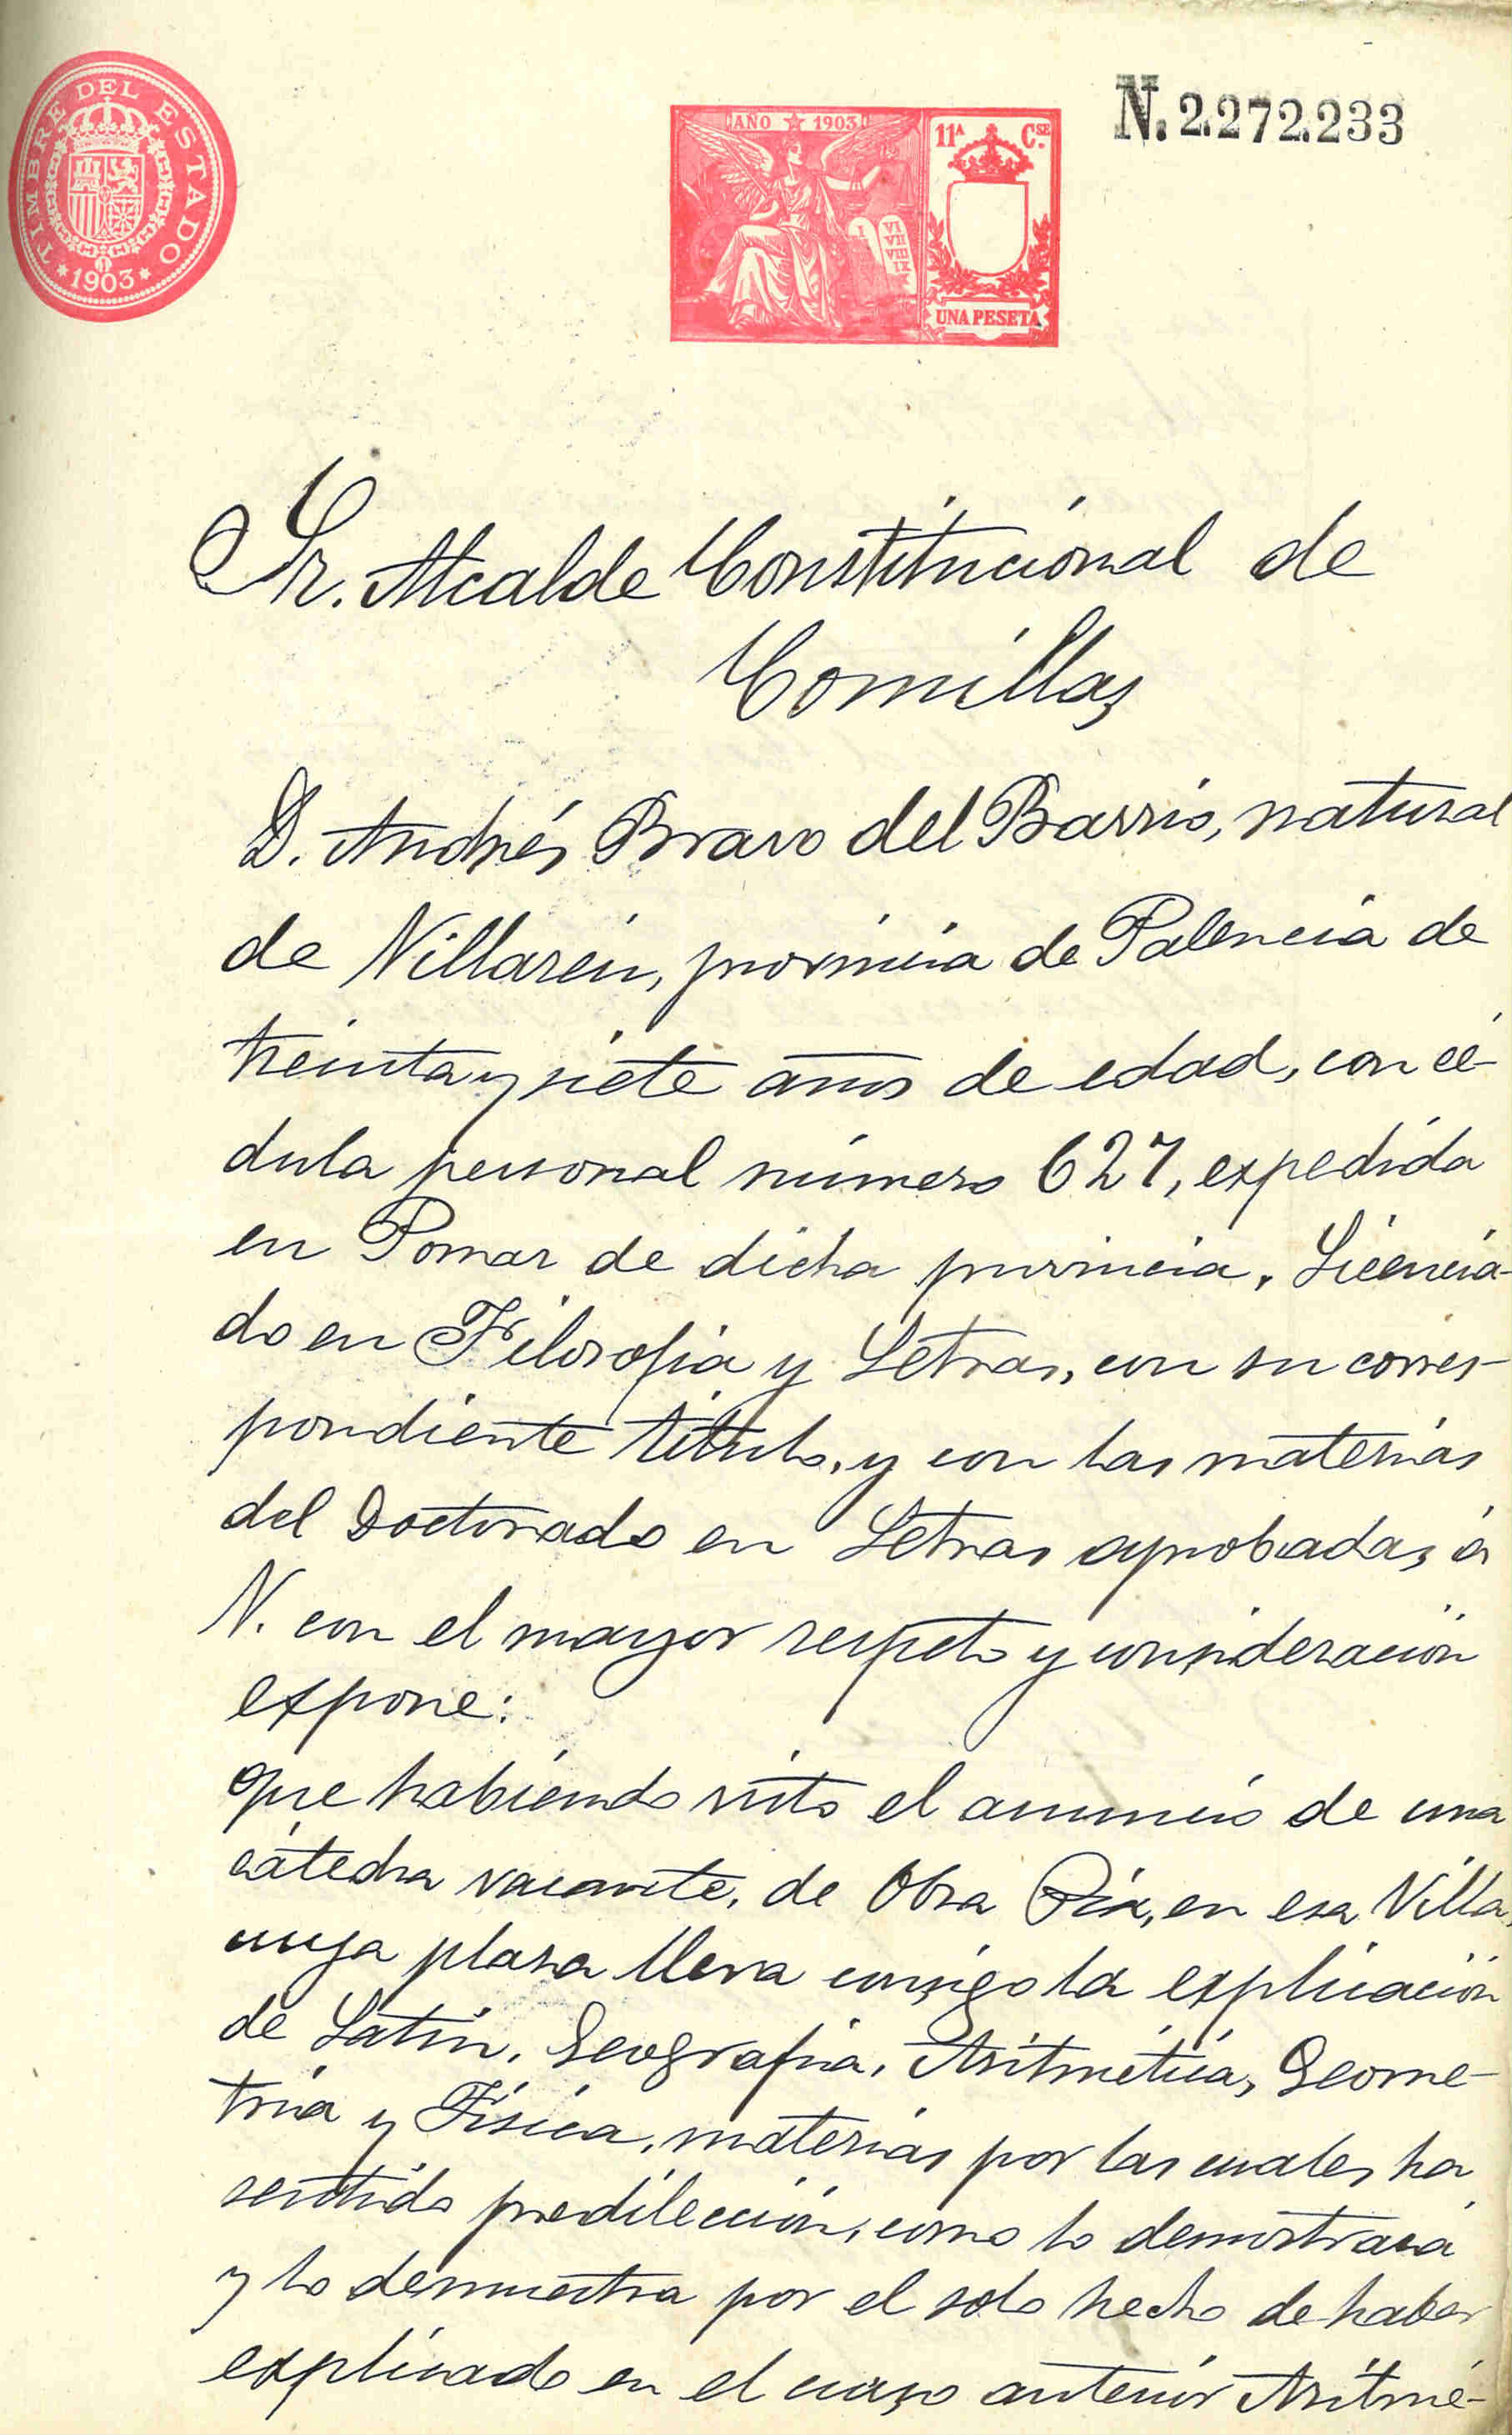 TIMBRE DEL ESTADO
*1903*
AÑO ★ 1903
11ª C.SE
I VI VII VIII IX
UNA PESETA
N. 2.272.233
Sr. Alcalde Constitucional de
Comillas
D. Andrés Bravo del Barrio, natural
de Villarén, provincia de Palencia de
treinta y siete años de edad, con cé-
dula personal número 627, expedida
en Pomar de dicha provincia, Licencia-
do en Filosofía y Letras, con su corres-
pondiente título, y con las materias
del Doctorado en Letras aprobadas, á
V. con el mayor respeto y consideración
expone:
que habiendo visto el anuncio de una
cátedra vacante, de Obra Pía, en esa Villa,
cuya plaza lleva consigo la explicación
de Latín, Geografía, Aritmética, Geome-
tría y Física, materias por las cuales ha
sentido predilección, como lo demostrará
y lo demuestra por el solo hecho de haber
explicado en el curso anterior Aritmé-